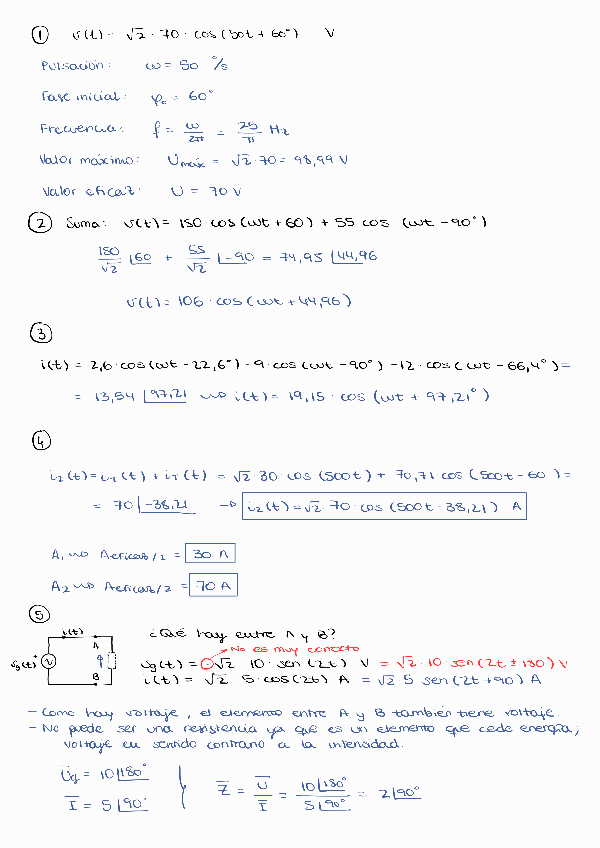 ① v(t) = √2 · 70 · cos(50t + 60°) V
Pulsación: ω = 50 º/s
Fase inicial: φ₀ = 60°
Frecuencia: f = ω/2π = 25/π Hz
Valor máximo: Umáx = √2 · 70 = 98,99 V
Valor eficaz: U = 70 V
② Suma: v(t) = 150 cos(ωt + 60) + 55 cos (ωt - 90°)
150/√2 |60 + 55/√2 |-90 = 74,95 |44,96
v(t) = 106 · cos(ωt + 44,96)
③
i(t) = 2,6 · cos(ωt - 22,6°) - 9 · cos(ωt - 90°) - 12 · cos(ωt - 66,4°) =
= 13,54 |97,21 → i(t) = 19,15 · cos(ωt + 97,21°)
④
i₂(t) = i₁(t) + iT(t) = √2 · 30 · cos(500t) + 70,71 · cos(500t - 60) =
= 70 |-38,21 → i₂(t) = √2 · 70 · cos(500t - 38,21) A
A₁ → Aeficaz/1 = 30 A
A₂ → Aeficaz/2 = 70 A
⑤
i(t) ¿Qué hay entre A y B?
A → No es muy correcto
vg(t) + vg(t) = -√2 10 · sen(2t) V = √2 · 10 · sen(2t ± 180) V
B i(t) = √2 5 · cos(2t) A = √2 5 sen(2t + 90) A
- Como hay voltaje, el elemento entre A y B también tiene voltaje.
- No puede ser una resistencia ya que es un elemento que cede energía;
voltaje en sentido contrario a la intensidad.
Ūg = 10 |180°
Ī = 5 |90°
Z̄ = Ū/Ī = 10 |180°/5 |90° = 2 |90°